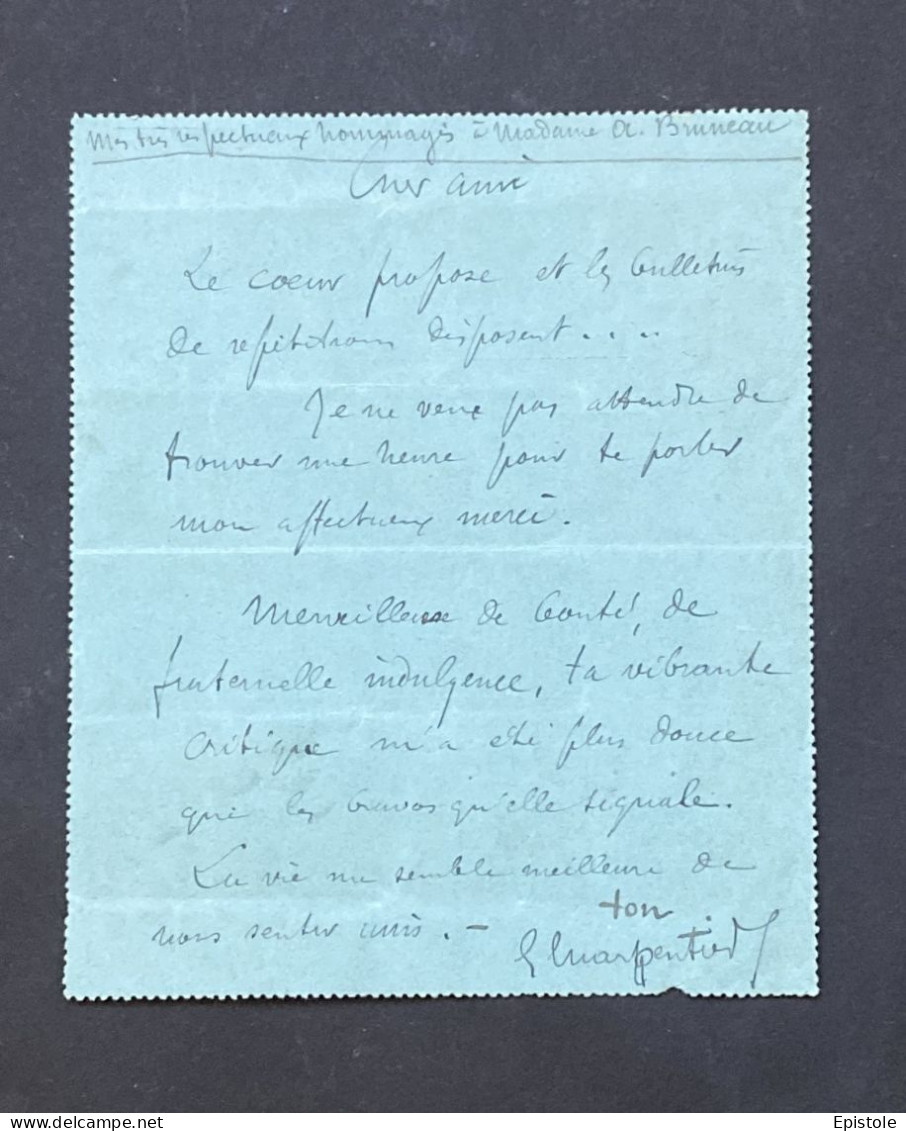 Mes très respectueux hommages à Madame A. Bruneau
Cher ami
Le coeur propose et les bulletins
de répétitions disposent....
Je ne veux pas attendre de
trouver une heure pour te porter
mon affectueux merci.
Merveilleuse de bonté, de
fraternelle indulgence, ta vibrante
critique m'a été plus douce
que les bravos qu'elle signale.
La vie me semble meilleure de
nous sentir unis. -
ton
G Charpentier
delcampe.net
Epistole